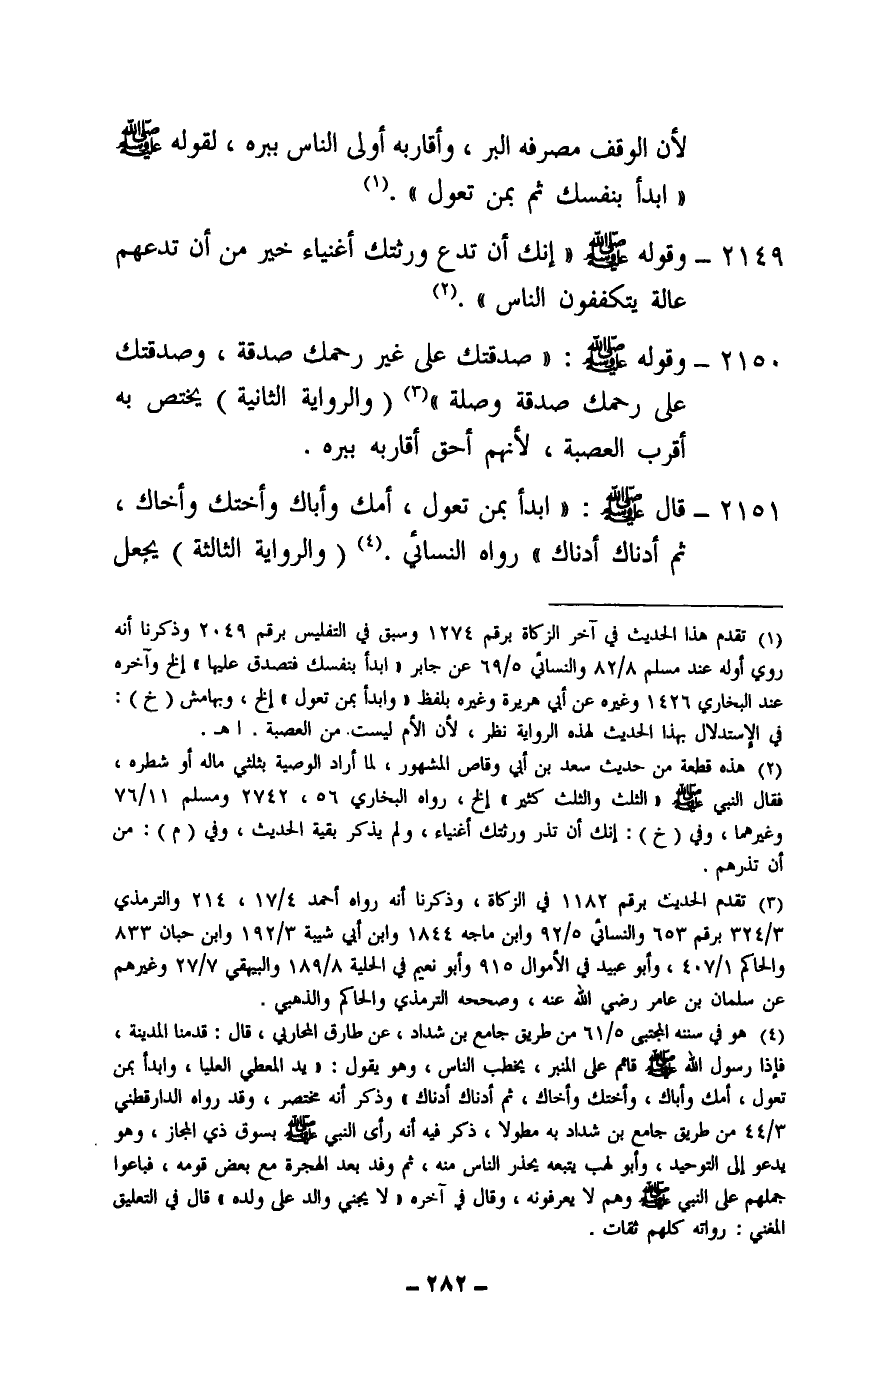 لأن الوقف مصرفه البر ، وأقاربه أولى الناس ببره ، لقوله ﷺ
« ابدأ بنفسك ثم بمن تعول » .(١)
٢١٤٩ – وقوله ﷺ « إنك أن تدع ورثتك أغنياء خير من أن تدعهم
عالة يتكففون الناس » .(٢)
٢١٥٠ – وقوله ﷺ : « صدقتك على غير رحمك صدقة ، وصدقتك
على رحمك صدقة وصلة »(٣) ( والرواية الثانية ) يختص به
أقرب العصبة ، لأنهم أحق أقاربه ببره .
٢١٥١ – قال ﷺ : « ابدأ بمن تعول ، أمك وأباك وأختك وأخاك ،
ثم أدناك أدناك » رواه النسائي .(٤) ( والرواية الثالثة ) يجعل
(١) تقدم هذا الحديث في آخر الزكاة برقم ١٢٧٤ وسبق في التفليس برقم ٢٠٤٩ وذكرنا أنه
روي أوله عند مسلم ٨٢/٨ والنسائي ٦٩/٥ عن جابر « ابدأ بنفسك فتصدق عليها » إلخ وآخره
عند البخاري ١٤٢٦ وغيره عن أبي هريرة وغيره بلفظ « وابدأ بمن تعول » إلخ ، وبهامش ( خ ) :
في الإستدلال بهذا الحديث لهذه الرواية نظر ، لأن الأم ليست من العصبة . ا هـ .
(٢) هذه قطعة من حديث سعد بن أبي وقاص المشهور ، لما أراد الوصية بثلثي ماله أو شطره ،
فقال النبي ﷺ « الثلث والثلث كثير » إلخ ، رواه البخاري ٥٦ ، ٢٧٤٢ ومسلم ٧٦/١١
وغيرهما ، وفي ( خ ) : إنك أن تذر ورثتك أغنياء ، ولم يذكر بقية الحديث ، وفي ( م ) : من
أن تذرهم .
(٣) تقدم الحديث برقم ١١٨٢ في الزكاة ، وذكرنا أنه رواه أحمد ١٧/٤ ، ٢١٤ والترمذي
٣٢٤/٣ برقم ٦٥٣ والنسائي ٩٢/٥ وابن ماجه ١٨٤٤ وابن أبي شيبة ١٩٢/٣ وابن حبان ٨٣٣
والحاكم ٤٠٧/١ ، وأبو عبيد في الأموال ٩١٥ وأبو نعيم في الحلية ١٨٩/٨ والبيهقي ٢٧/٧ وغيرهم
عن سلمان بن عامر رضي الله عنه ، وصححه الترمذي والحاكم والذهبي .
(٤) هو في سننه المجتبى ٦١/٥ من طريق جامع بن شداد ، عن طارق المحاربي ، قال : قدمنا المدينة ،
فإذا رسول الله ﷺ قائم على المنبر ، يخطب الناس ، وهو يقول : « يد المعطي العليا ، وابدأ بمن
تعول ، أمك وأباك ، وأختك وأخاك ، ثم أدناك أدناك » وذكر أنه مختصر ، وقد رواه الدارقطني
٤٤/٣ من طريق جامع بن شداد به مطولا ، ذكر فيه أنه رأى النبي ﷺ بسوق ذي المجاز ، وهو
يدعو إلى التوحيد ، وأبو لهب يتبعه يحذر الناس منه ، ثم وفد بعد الهجرة مع بعض قومه ، فباعوا
جملهم على النبي ﷺ وهم لا يعرفونه ، وقال في آخره « لا يجني والد على ولده » قال في التعليق
المغني : رواته كلهم ثقات .
– ٢٨٢ –